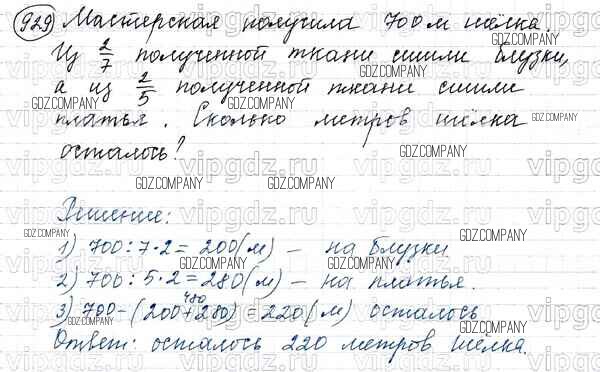 929 Мастерская получила 700 м шёлка.
Из 2/7 полученной ткани сшили блузки,
а из 2/5 полученной ткани сшили
платья. Сколько метров шёлка
осталось?
Решение:
1) 700:7·2=200(м) – на блузки
2) 700:5·2=280(м) – на платья.
480
3) 700–(200+280)=220(м) осталось
Ответ: осталось 220 метров шёлка.